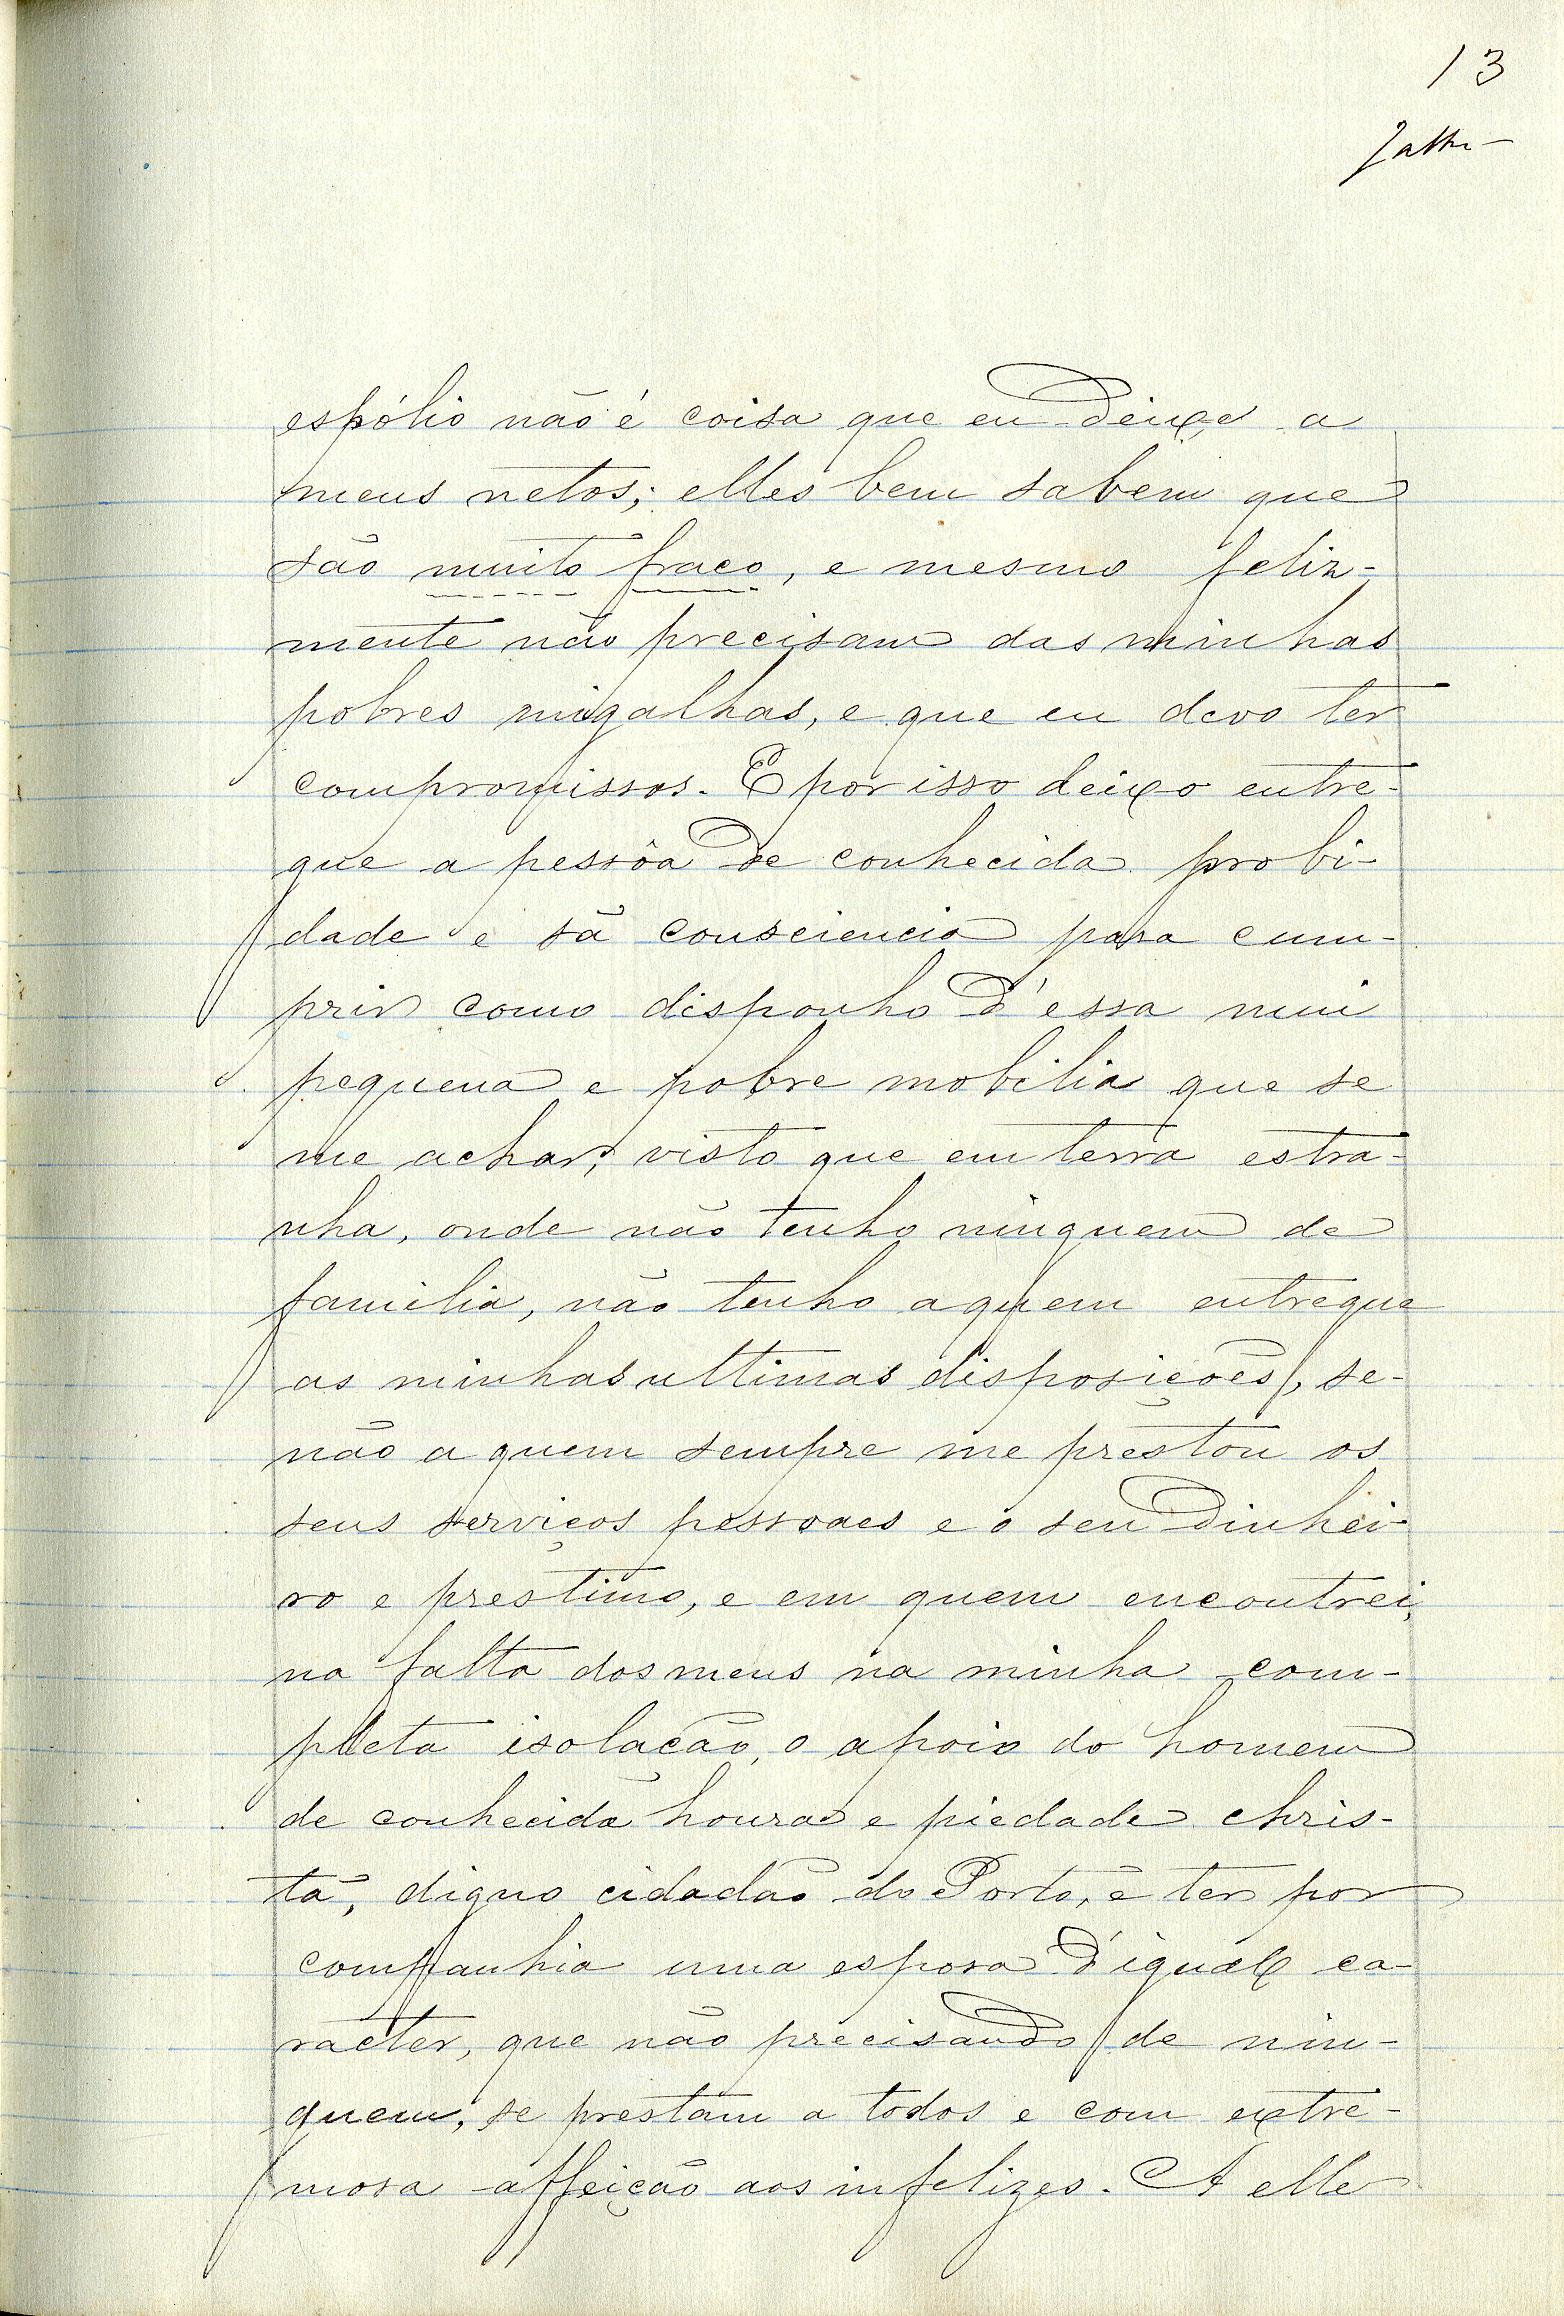 13
espólio não é coisa que eu deixe a
meus netos; elles bem sabem que
são muito fraco, e mesmo feliz-
mente não precisam das minhas
pobres migalhas, e que eu devo ter
compromissos. E por isso deixo entre-
gue a pessôa de conhecida probi-
dade e sã consciencia para cum-
prir como disponho d'essa mui
pequena e pobre mobilia que se
me achar, visto que em terra estra-
nha, onde não tenho ninguem de
familia, não tenho a quem entregue
as minhas ultimas disposições, se-
não a quem sempre me prestou os
seus serviços pessoaes e o seu dinhei-
ro e prestimo, e em quem encontrei,
na falta dos meus na minha com-
pleta isolação, o apoio do homem
de conhecida honra e piedade chris-
tã, digno cidadão do Porto, e ter por
companhia uma esposa d'igual ca-
racter, que não precisando de nin-
guem, se prestam a todos e com extre-
mosa affeição aos infelizes. A elle